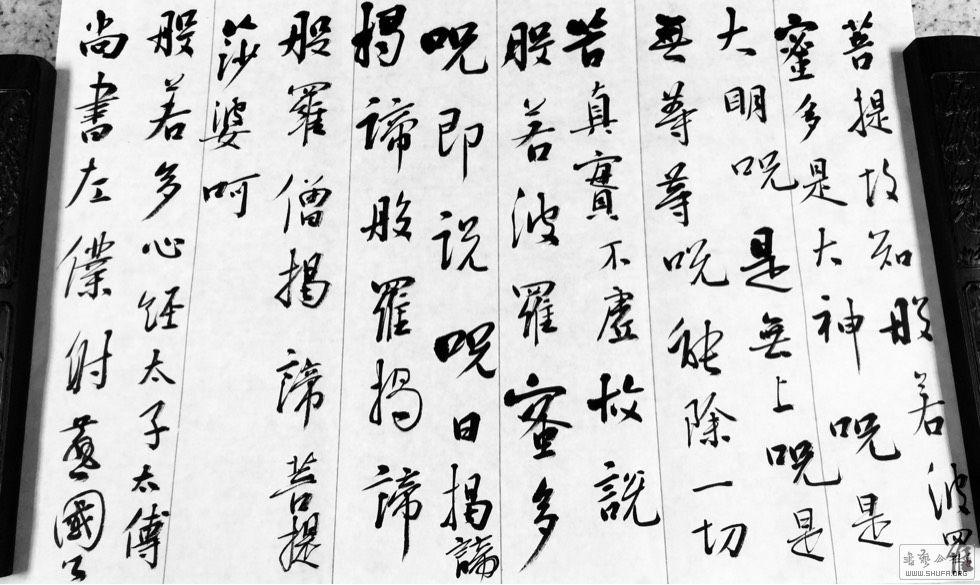 菩提故知般若波羅
蜜多是大神呪是
大明呪是無上呪是
無等等呪能除一切
苦真實不虛故說
般若波羅蜜多
呪即说呪曰揭諦
揭諦般羅揭諦
般羅僧揭諦菩提
莎婆呵
般若多心经太子太傅
尚書左僕射燕國公
WWW.SHUFA.ORG